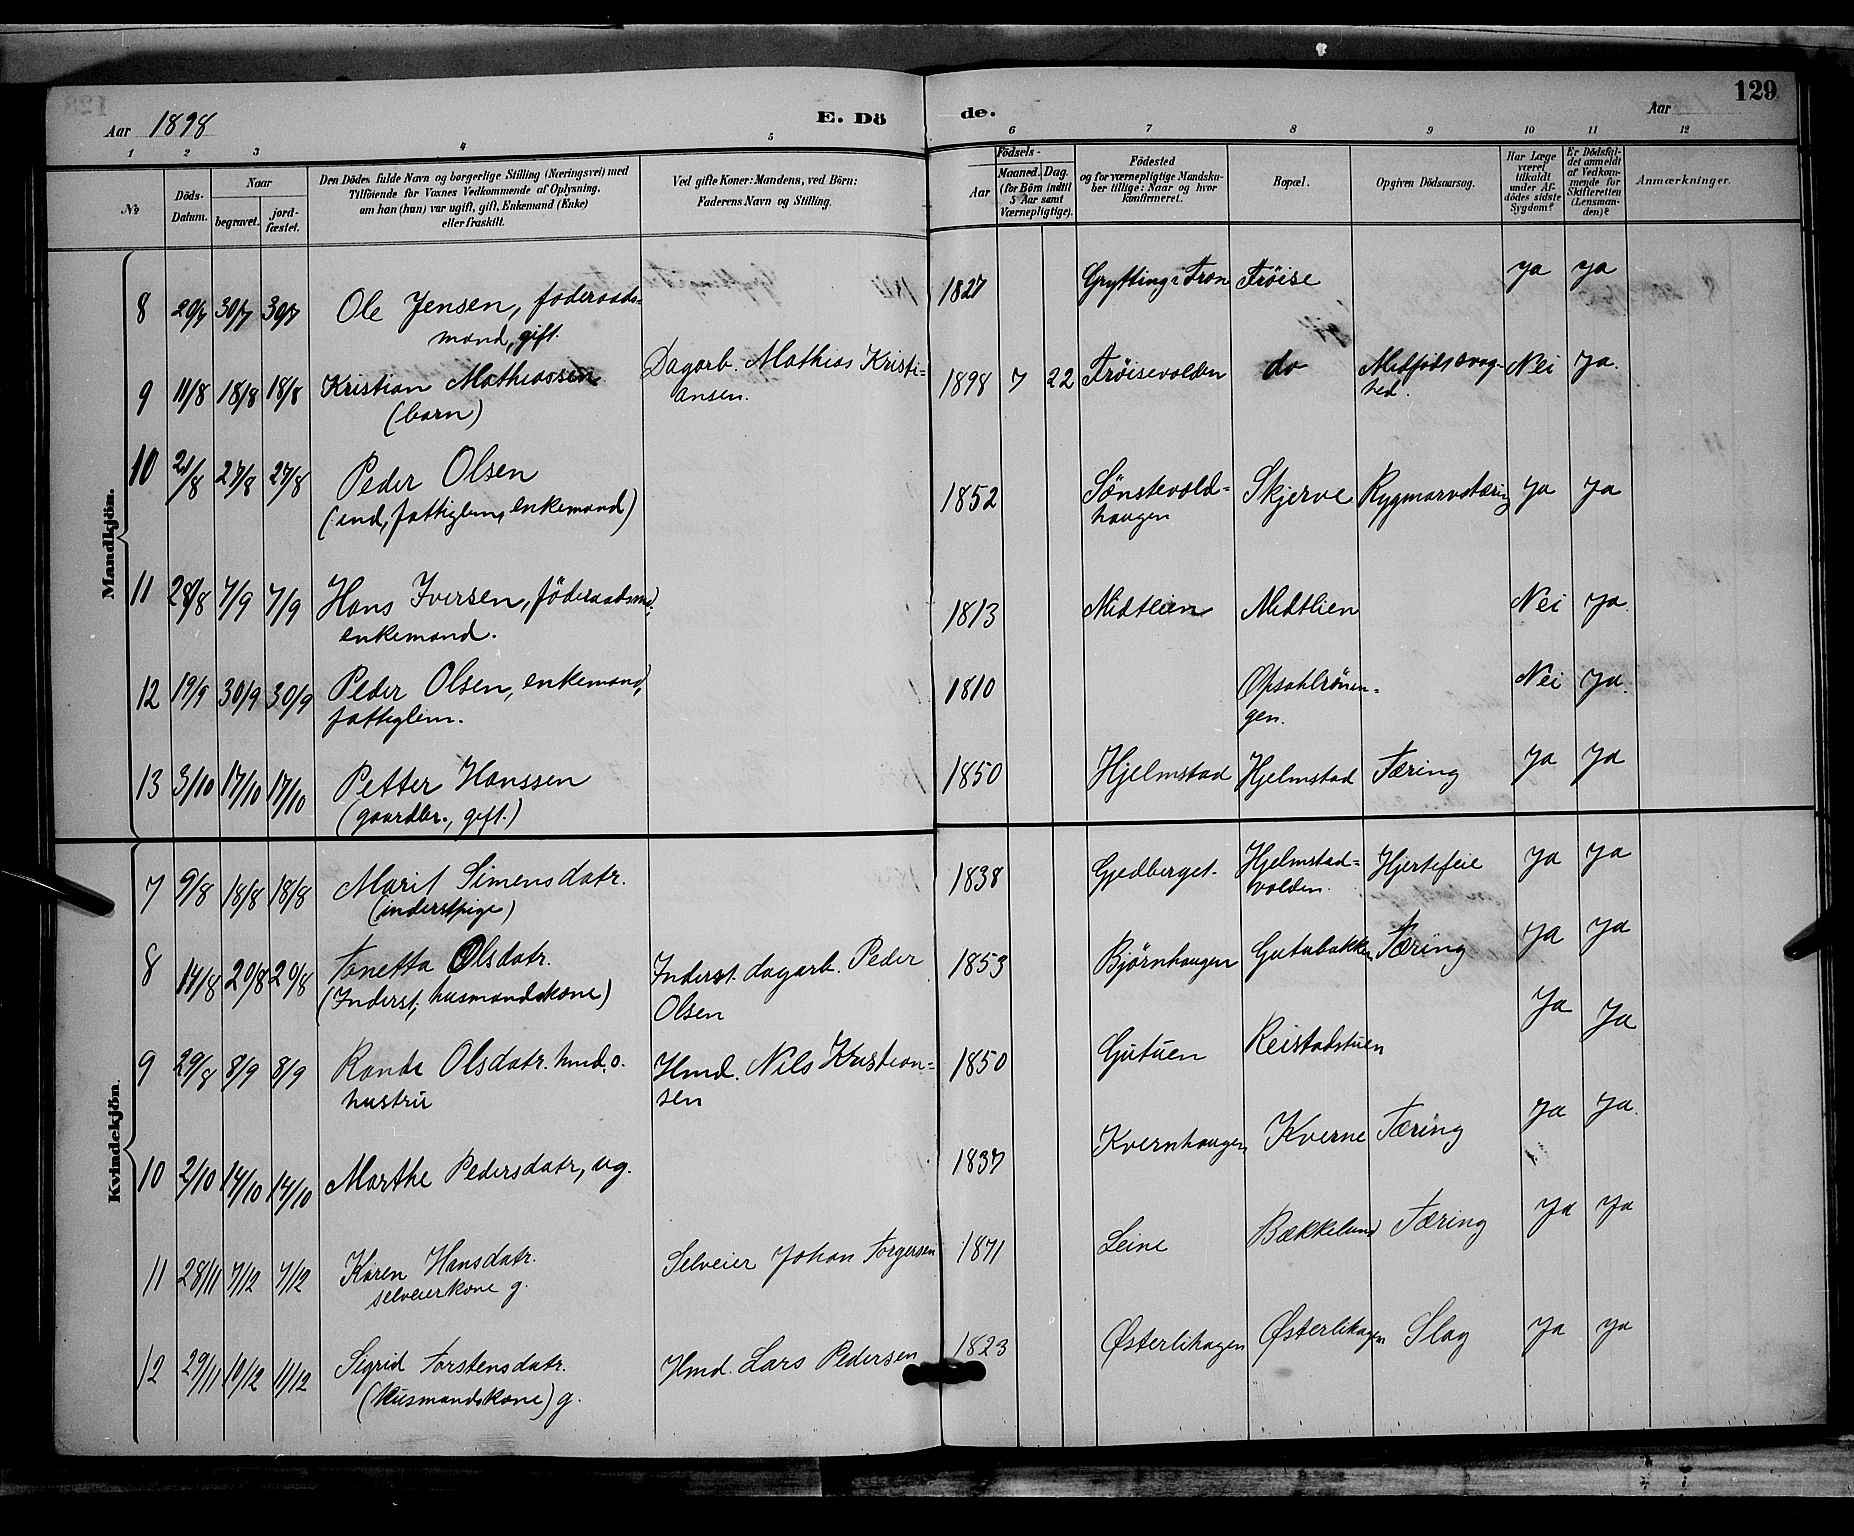 129
Aar 1898
E. Dö
de.
Aar
1 2 3 4 5 6 7 8 9 10 11 12
No
Döds-Datum.
Naar
begravet.
jord-fæstet.
Den Dödes fulde Navn og borgerlige Stilling (Næringsvei) med
Tilföiende for Voxnes Vedkommende af Oplysning,
om han (hun) var ugift, gift, Enkemand (Enke)
eller fraskilt.
Ved gifte Koner: Mandens, ved Börn:
Faderens Navn og Stilling.
Födsels-
Aar
Maaned. Dag.
(for Börn indtil
5 Aar samt
Værnepligtige).
Födested
og for værnepligtige Mandska-
ber tillige: Naar og hvor
konfirmeret.
Bopæl.
Opgiven Dödsaarsag.
Har Læge
været
tilkaldt
under Af-
dödes sidste
Sygdom?
Er Dödsfal-
det anmeldt
af Vedkom-
mende for
Skifteretten
(Lensman-
den)?
Anmærkninger.
Mandkjön.
8 20/7 30/7 30/7 Ole Jensen, föderaads- 1827 Grytting i Fron Frøise Ja Ja
mand, gift.
9 11/8 18/8 18/8 Kristian Mathiassen Dagarb. Mathias Kristi- 1898 7 22 Frøisevolden do Medfødt svag- Nei Ja.
(barn) ansen. hed.
10 21/8 27/8 27/8 Peder Olsen 1852 Sønstevold- Skjerve Rygmarvstæring Ja Ja
(ind, fattiglem, enkemand) haugen
11 28/8 7/9 7/9 Hans Iversen, föderaadsmd, 1813 Midtlien Midtlien Nei Ja.
enkemand.
12 19/9 30/9 30/9 Peder Olsen, enkemand, 1810 Opsahlrönin- Nei Ja.
fattiglem. gen.
13 3/10 17/10 17/10 Petter Hanssen 1850 Hjelmstad Hjelmstad Tæring Ja Ja
(gaardbr., gift.)
Kvindekjön.
7 9/8 18/8 18/8 Marit Simensdatr. 1838 Gjedberget. Hjelmstad- Hjertefeil Ja Ja
(inderstpige) volden.
8 14/8 20/8 20/8 Tonetta Olsdatr. Inderst. dagarb. Peder 1853 Bjørnhaugen Gutubakken Tæring Ja Ja
(Inderst, husmandskone) Olsen
9 29/8 8/9 8/9 Rande Olsdatr. hmd. o. Hmd. Nils Kristian- 1850 Gutuen Reistadstuen Ja Ja
hustru sen
10 2/10 14/10 14/10 Marthe Pedersdatr, ug. 1837 Kvernhaugen Kverne Tæring Ja Ja.
11 28/11 7/12 7/12 Karen Hansdatr. Selveier Johan Torgersen 1871 Leine Bækkelund Tæring Ja Ja
selveierkone g.
12 29/11 10/12 11/12 Sigrid Torstensdatr. Hmd. Lars Pedersen 1823 Østerlihagen Østerlihagen Slag Ja Ja
(husmandskone) g.